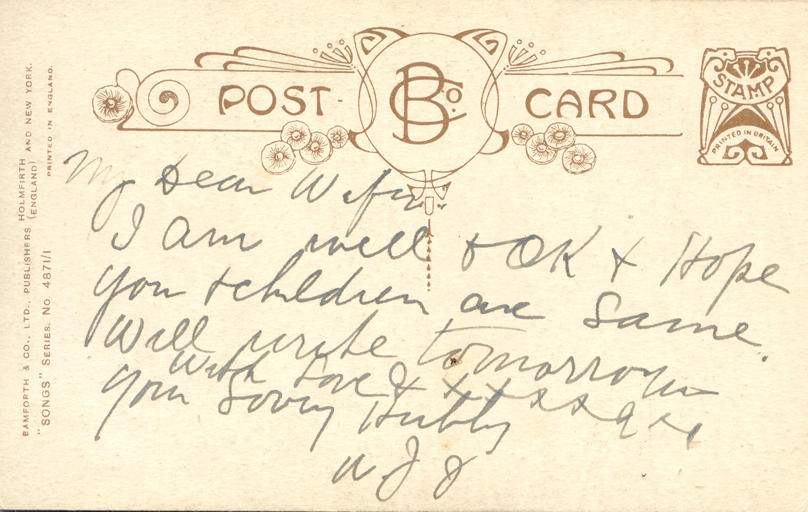 BAMFORTH & CO., LTD., PUBLISHERS HOLMFIRTH (ENGLAND) AND NEW YORK.
"SONGS" SERIES. No. 4871/1
PRINTED IN ENGLAND.
POST CARD
B Co.
STAMP
PRINTED IN BRITAIN
My Dear Wife
I am well & OK & Hope
you & children are Same.
Will write tomorrow
With Love & x x x x x
your Loving Hubby
W J J